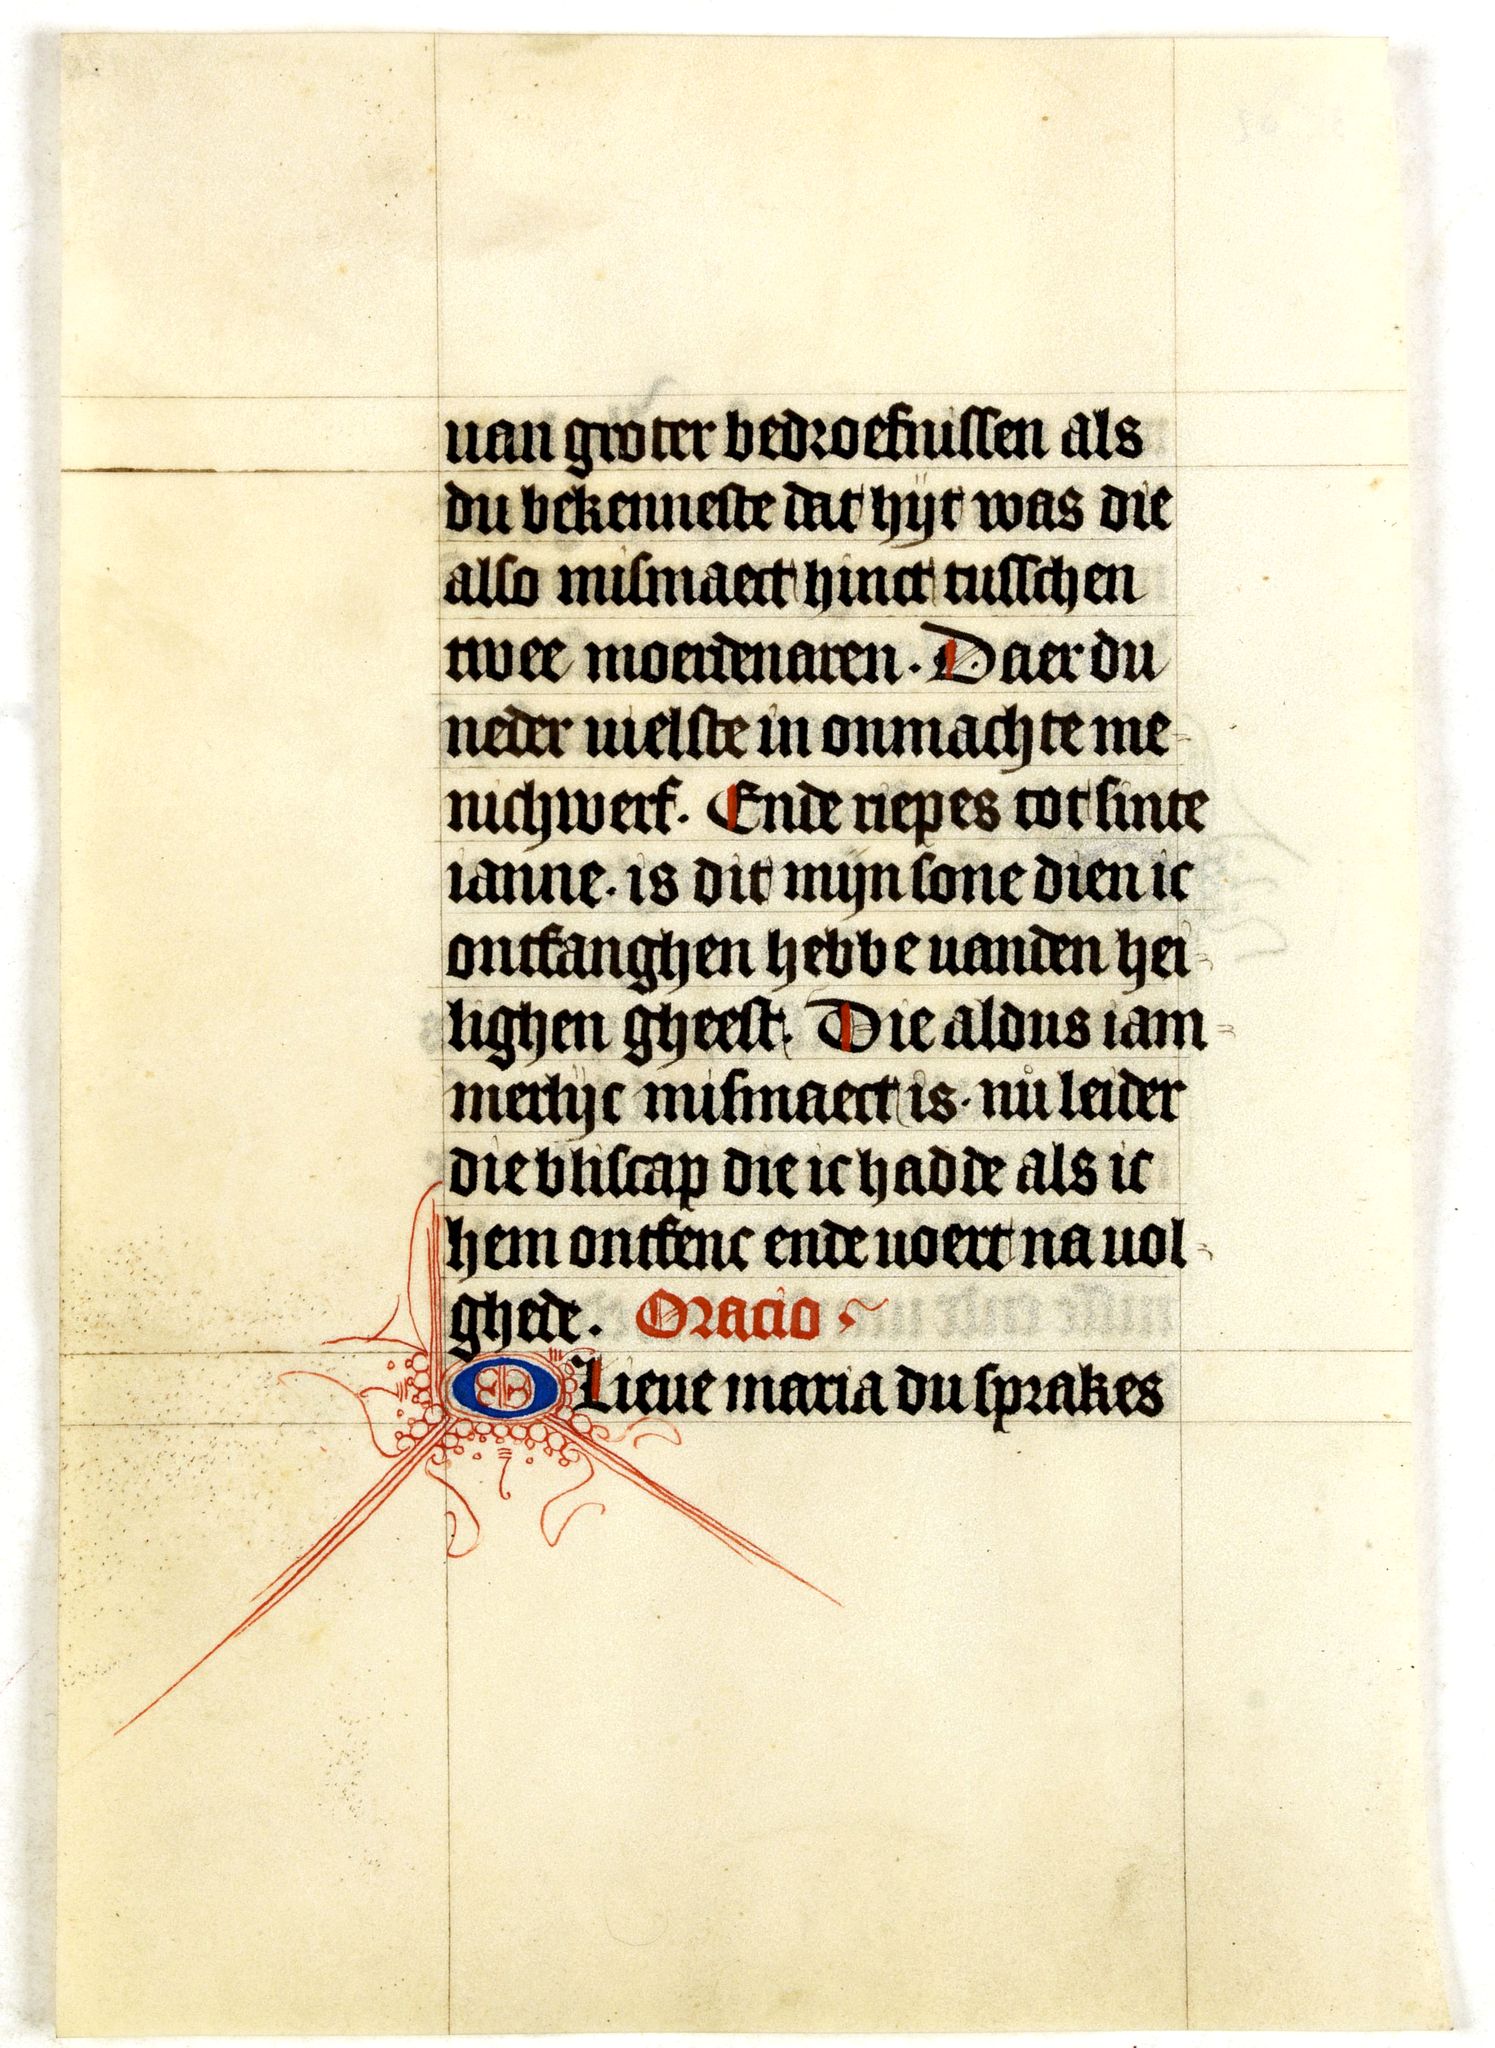 uan groter bedroefnissen als
du bekenneste dat hijt was die
also mismaect hinct tusschen
twee moerdenaren. Daer du
neder uielste in onmachte me-
nichwerf. Ende riepes tot sinte
ianne. is dit mijn sone dien ic
ontfanghen hebbe uanden hei-
lighen gheest. Die aldus iam-
merlijc mismaect is. nu leider
die bliscap die ic hadde als ic
hem ontfenc ende uoert na uol-
ghede. Oracio
O Lieue maria du sprakes